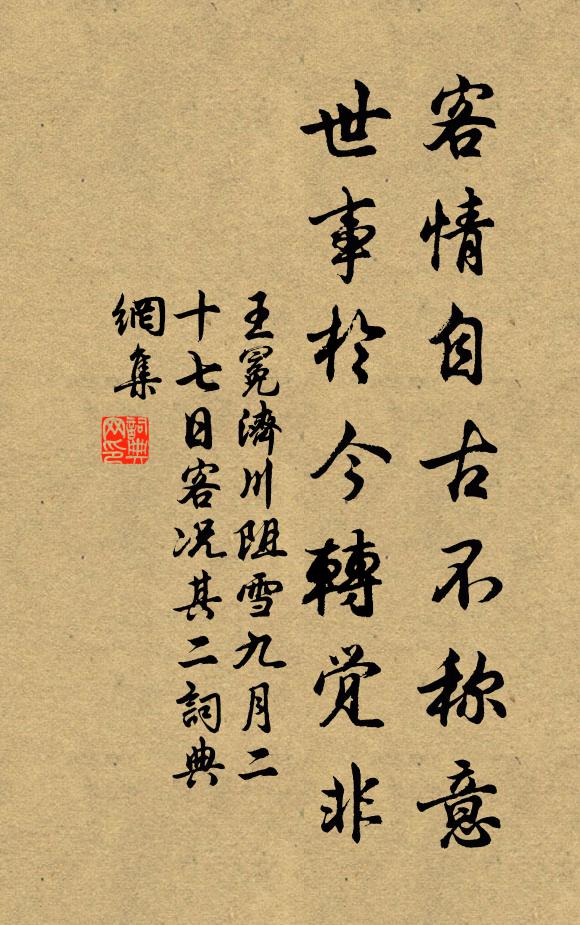 客情自古不称意
世事於今轉覺非
王冕濟川阻雪九月二
十七日客况其二詞典
網集
詞典
网印